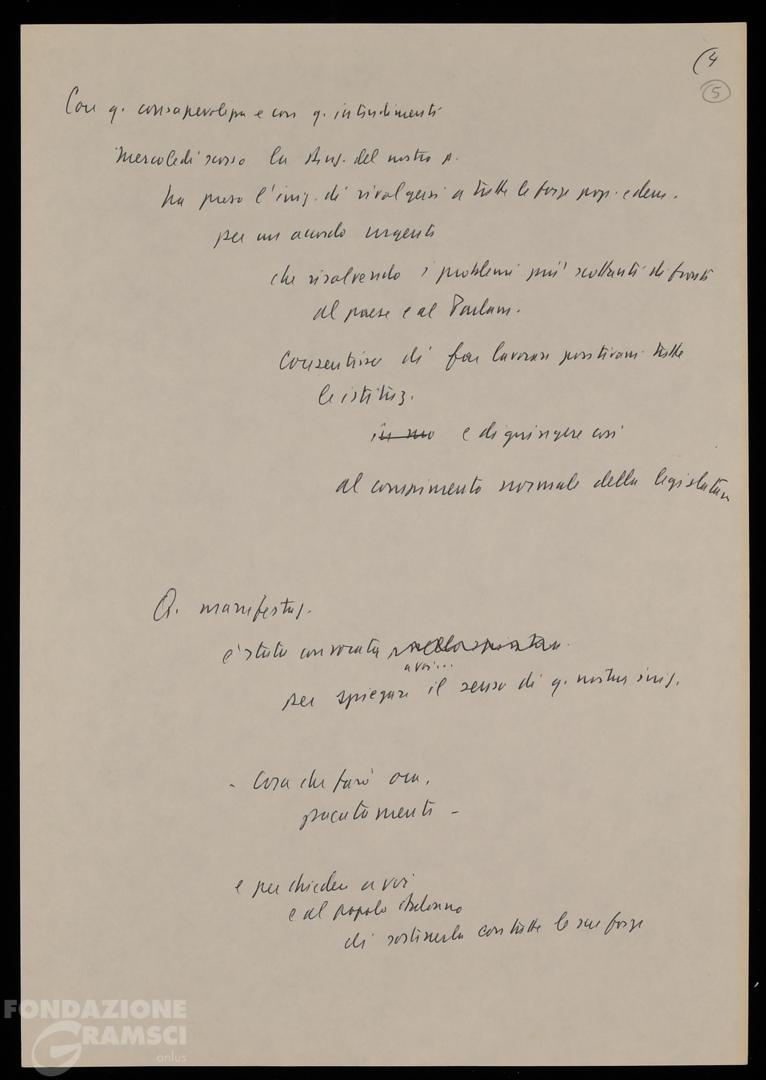 (4
5
Con q. consapevolezza e con q. intendimenti
Mercoledì scorso la Direz. del nostro p.
ha preso l'iniz. di rivolgersi a tutte le forze pop. e dem.
per un accordo urgente
che risolvendo i problemi più scottanti di fronte
al paese e al Parlam.
Consentisse di far lavorare positivam. tutte
le istituz.
e di giungere così
al compimento normale della legislatura
Q. manifestaz.
è stata convocata
a voi...
per spiegare il senso di q. nostra iniz.
- Cosa che farò ora,
pacatamente -
e per chiedere a voi
e al popolo italiano
di sostenerla con tutte le sue forze
FONDAZIONE
GRAMSCI
onlus